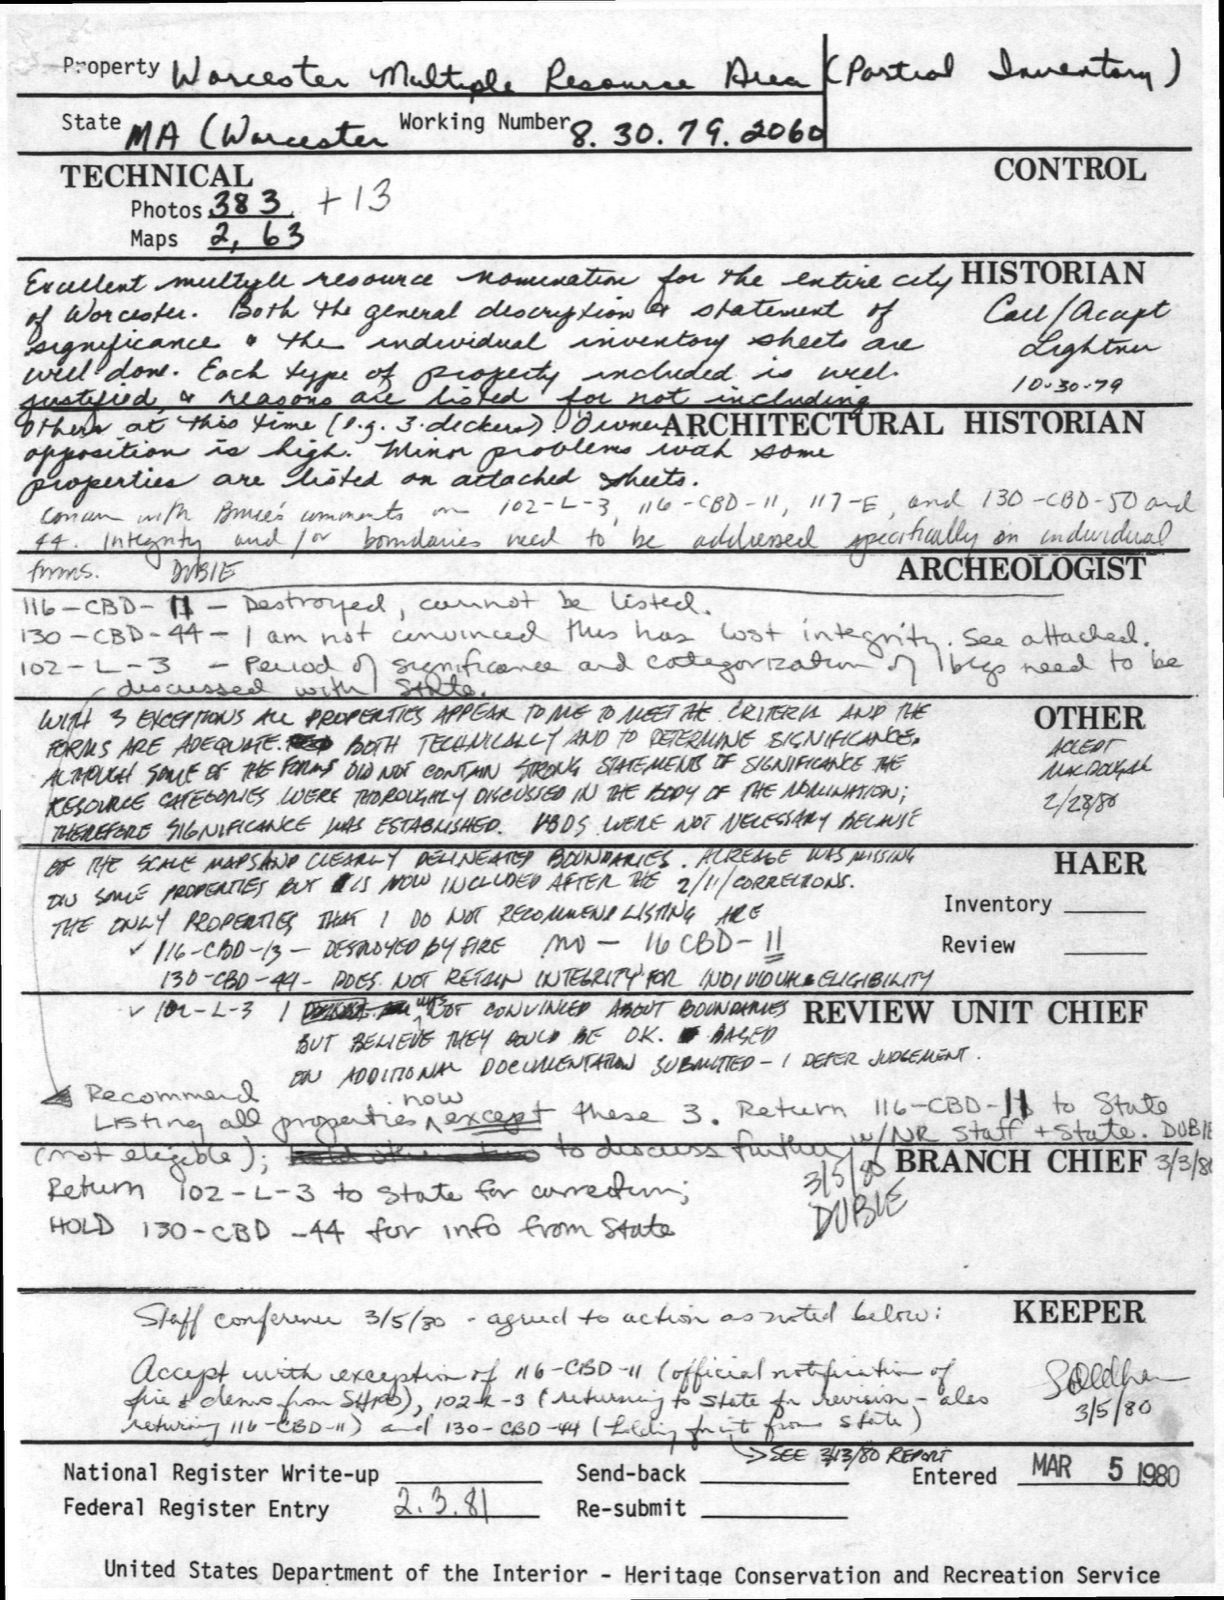 Property Worcester Multiple Resource Area (Partial Inventory)
State MA (Worcester Working Number 8.30.79.2060
TECHNICAL CONTROL
Photos 383 + 13
Maps 2, 63
Excellent multiple resource nomination for the entire city HISTORIAN
of Worcester. Both the general description & statement of Call/Accept
significance & the individual inventory sheets are Lightner
well done. Each type of property included is well 10-30-79
justified & reasons are listed for not including
others at this time (e.g. 3-deckers). Owner ARCHITECTURAL HISTORIAN
opposition is high. Minor problems with some
properties are listed on attached sheets.
concur with Bruce's comments on 102-L-3, 116-CBD-11, 117-E, and 130-CBD-50 and
44. Integrity and/or boundaries need to be addressed specifically on individual
forms. DUBIE ARCHEOLOGIST
116-CBD-11 - Destroyed, cannot be listed.
130-CBD-44 - I am not convinced this has lost integrity. See attached.
102-L-3 - Period of significance and categorization of bldgs need to be
discussed with State.
WITH 3 EXCEPTIONS ALL PROPERTIES APPEAR TO ME TO MEET THE CRITERIA AND THE OTHER
FORMS ARE ADEQUATE. BOTH TECHNICALLY AND TO DETERMINE SIGNIFICANCE. ACCEPT
ALTHOUGH SOME OF THE FORMS DID NOT CONTAIN STRONG STATEMENTS OF SIGNIFICANCE THE MACDOUGAL
RESOURCE CATEGORIES WERE THOROUGHLY DISCUSSED IN THE BODY OF THE NOMINATION; 2/28/80
THEREFORE SIGNIFICANCE WAS ESTABLISHED. VBDS WERE NOT NECESSARY BECAUSE
OF THE SCALE MAPS AND CLEARLY DELINEATED BOUNDARIES. ACREAGE WAS MISSING HAER
ON SOME PROPERTIES BUT IS NOW INCLUDED AFTER THE 2/11/CORRECTIONS.
THE ONLY PROPERTIES THAT I DO NOT RECOMMEND LISTING ARE Inventory
✓ 116-CBD-13 - DESTROYED BY FIRE NO - 16 CBD-11 Review
130-CBD-44 - DOES NOT RETAIN INTEGRITY FOR INDIVIDUAL ELIGIBILITY
✓ 102-L-3 I was NOT CONVINCED ABOUT BOUNDARIES REVIEW UNIT CHIEF
BUT BELIEVE THEY COULD BE OK. BASED
ON ADDITIONAL DOCUMENTATION SUBMITTED - I DEFER JUDGEMENT.
Recommend
Listing all properties now except these 3. Return 116-CBD-11 to State
(not eligible); to discuss further w/NR Staff + State. DUBIE
3/5/80 BRANCH CHIEF 3/3/80
Return 102-L-3 to State for correction; DUBIE
HOLD 130-CBD-44 for info from State
Staff conference 3/5/80 - agreed to action as noted below: KEEPER
Accept with exception of 116-CBD-11 (official notification of
fire & demo from SHPO), 102-L-3 (returning to State for revision - also 3/5/80
returning 116-CBD-11) and 130-CBD-44 (holding for it from State)
SEE 3/13/80 REPORT
National Register Write-up Send-back Entered MAR 5 1980
Federal Register Entry 2.3.81 Re-submit
United States Department of the Interior - Heritage Conservation and Recreation Service